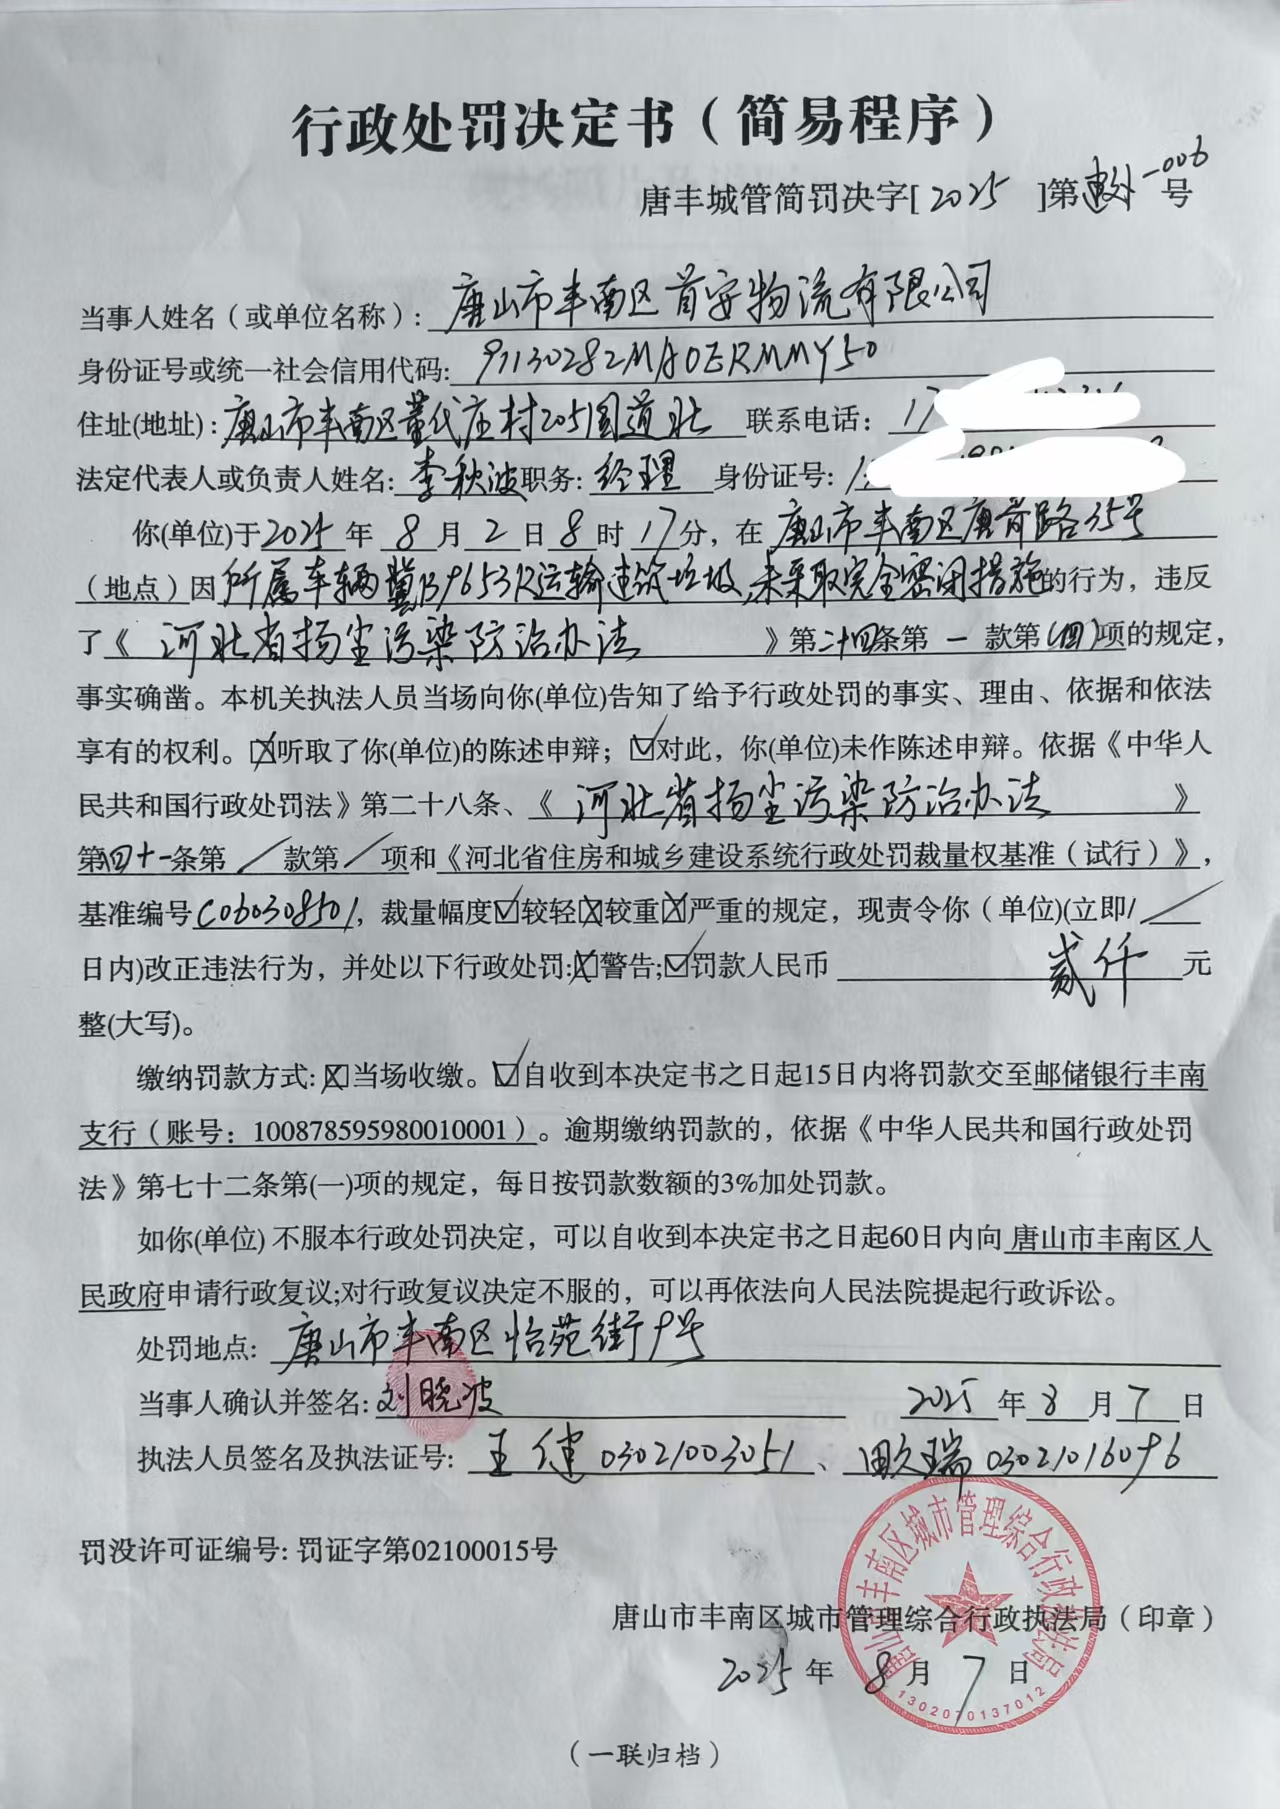 行政处罚决定书（简易程序）
唐丰城管简罚决字[ 2025 ]第建外-006号
当事人姓名（或单位名称）: 唐山市丰南区首安物流有限公司
身份证号或统一社会信用代码: 91130282MA0ERMMY50
住址(地址): 唐山市丰南区董代庄村205国道北 联系电话: 17
法定代表人或负责人姓名: 李秋波 职务: 经理 身份证号: 1
你(单位)于2025年8月2日8时17分，在唐山市丰南区唐胥路35号
（地点）因所属车辆冀B9653K运输建筑垃圾,未采取完全密闭措施的行为，违反
了《河北省扬尘污染防治办法》第二十四条第一款第(四)项的规定，
事实确凿。本机关执法人员当场向你(单位)告知了给予行政处罚的事实、理由、依据和依法
享有的权利。☒听取了你(单位)的陈述申辩；☑对此，你(单位)未作陈述申辩。依据《中华人
民共和国行政处罚法》第二十八条、《河北省扬尘污染防治办法》
第四十一条第／款第／项和《河北省住房和城乡建设系统行政处罚裁量权基准（试行）》，
基准编号C060308501，裁量幅度☑较轻☒较重☒严重的规定，现责令你（单位)(立即/／
日内)改正违法行为，并处以下行政处罚:☒警告;☑罚款人民币 贰仟 元
整(大写)。
缴纳罚款方式:☒当场收缴。☑自收到本决定书之日起15日内将罚款交至邮储银行丰南
支行（账号：100878595980010001）。逾期缴纳罚款的，依据《中华人民共和国行政处罚
法》第七十二条第(一)项的规定，每日按罚款数额的3%加处罚款。
如你(单位) 不服本行政处罚决定，可以自收到本决定书之日起60日内向 唐山市丰南区人
民政府申请行政复议;对行政复议决定不服的，可以再依法向人民法院提起行政诉讼。
处罚地点: 唐山市丰南区怡苑街9号
当事人确认并签名: 刘晓波 2025年8月7日
执法人员签名及执法证号: 王健 03021003051、瑞 03021016096
罚没许可证编号: 罚证字第02100015号
唐山市丰南区城市管理综合行政执法局（印章）
2025年8月7日
唐山市丰南区城市管理综合行政执法局
1302070137012
（一联归档）